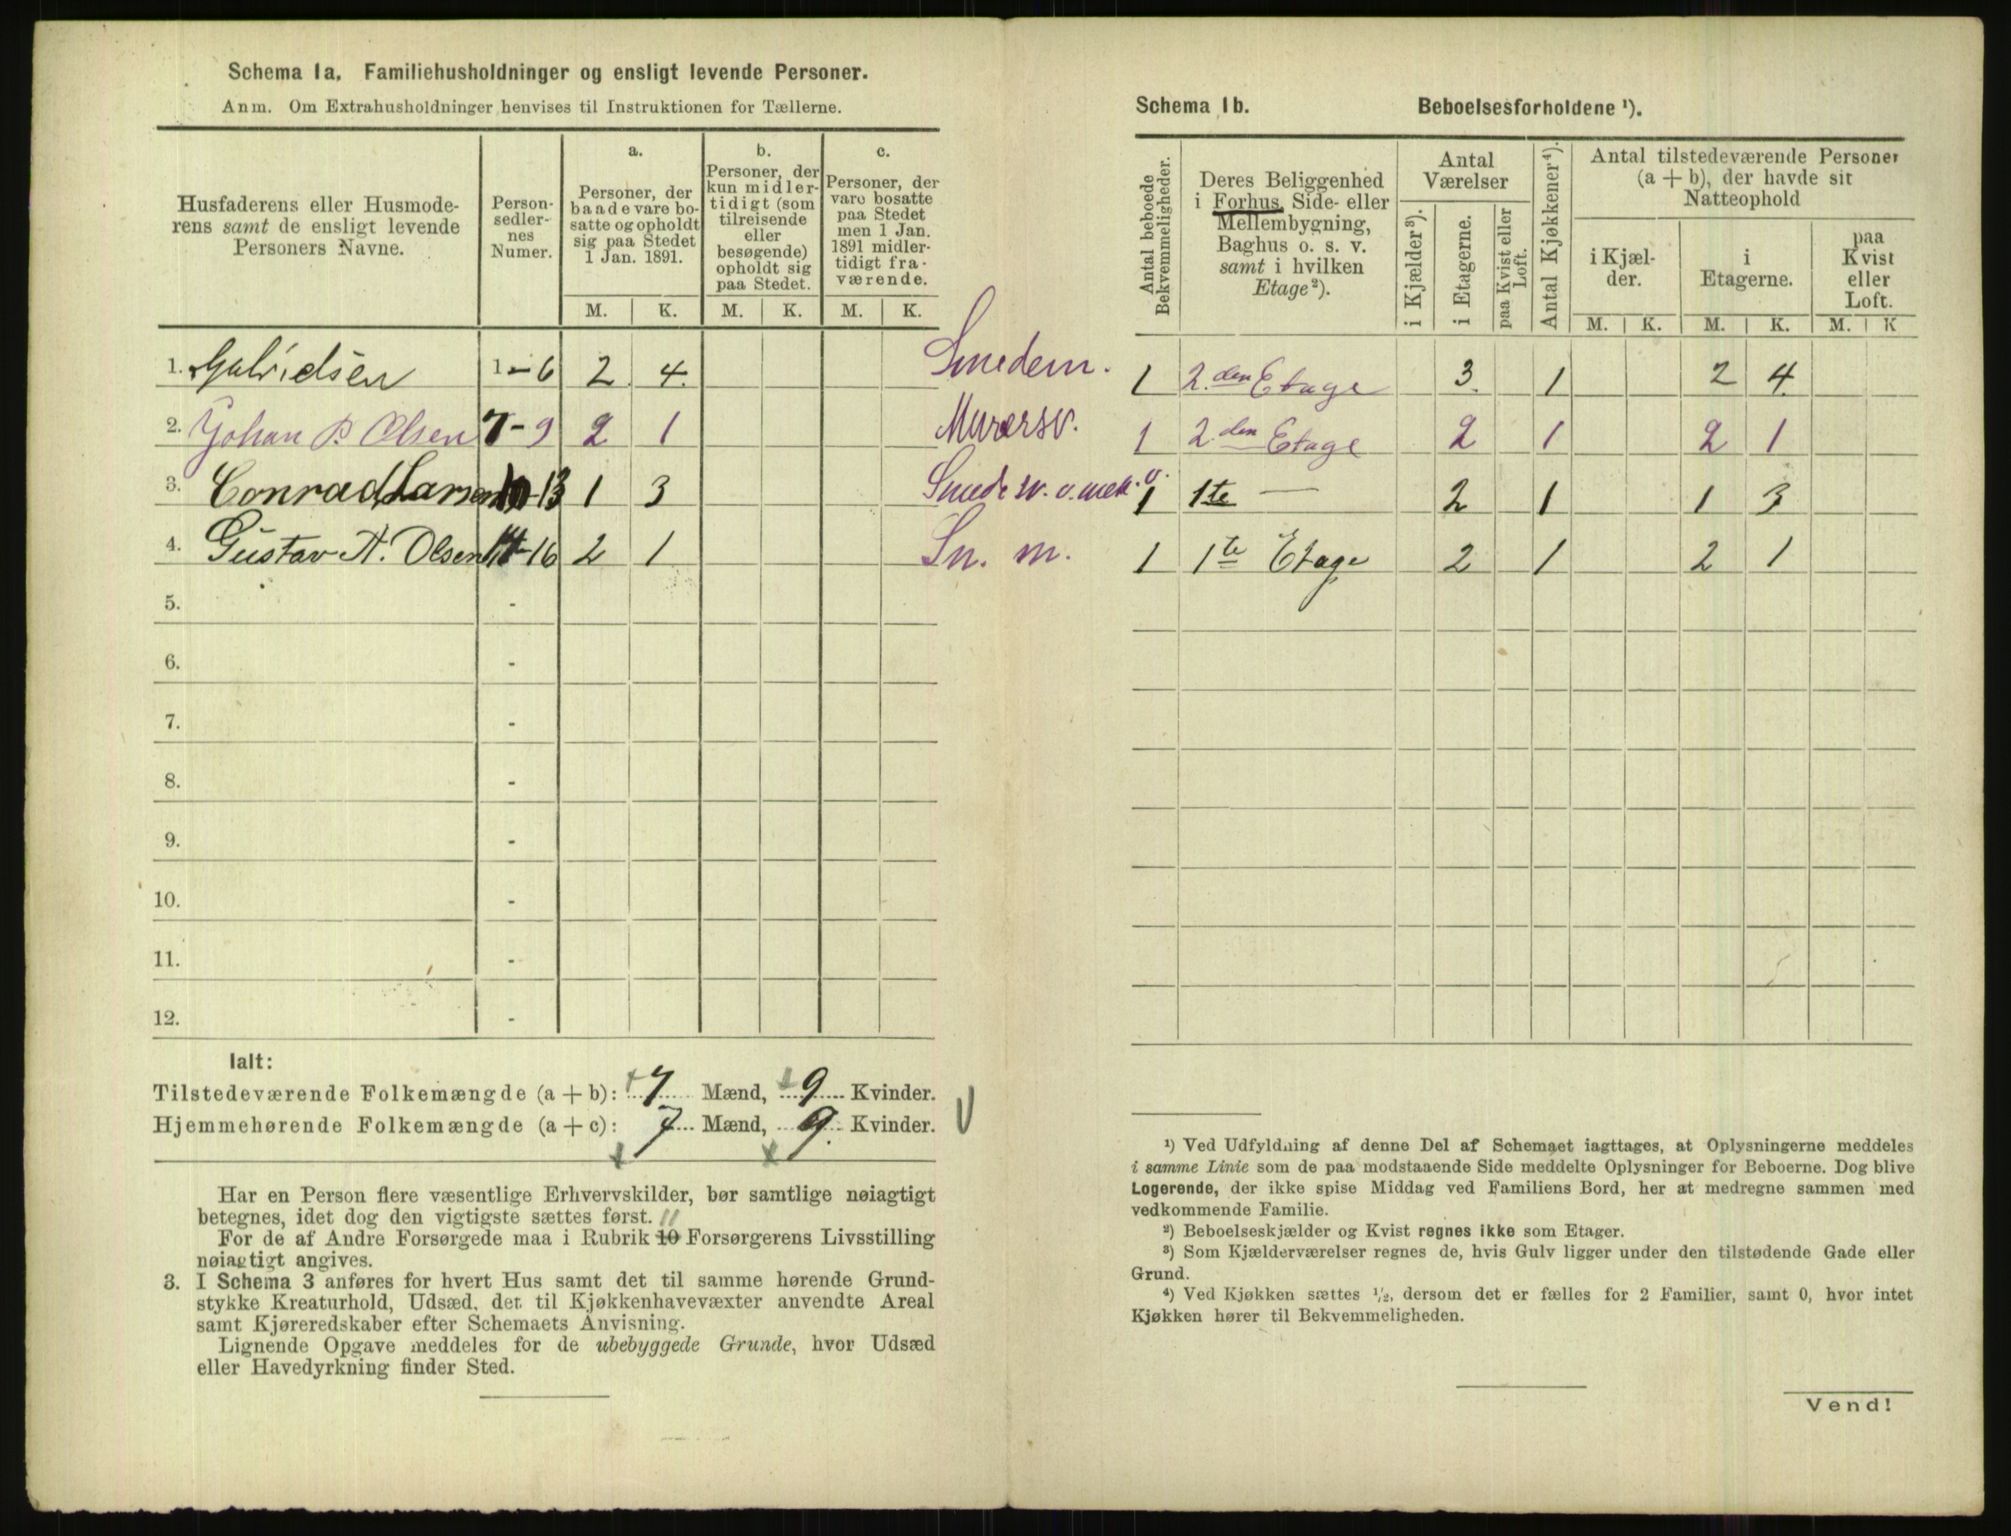 Schema 1a. Familiehusholdninger og ensligt levende Personer.
Anm. Om Extrahusholdninger henvises til Instruktionen for Tællerne.
Husfaderens eller Husmode-
rens samt de ensligt levende
Personers Navne.
Person-
sedler-
nes
Numer.
a.
Personer, der
baade vare bo-
satte og opholdt
sig paa Stedet
1 Jan. 1891.
b.
Personer, der
kun midler-
tidigt (som
tilreisende
eller
besøgende)
opholdt sig
paa Stedet.
c.
Personer, der
vare bosatte
paa Stedet
men 1 Jan.
1891 midler-
tidigt fra-
værende.
M. K. M. K. M. K.
1. Gabrielsen 1-6 2 4 Smedem.
2. Johan P. Olsen 7-9 2 1 Murersv.
3. Conrad Larsen 10-13 1 3 Smedesv. o. mek.
4. Gustav A. Olsen 14-16 2 1 Sn. m.
5. -
6. -
7. -
8. -
9. -
10. -
11. -
12. -
Ialt:
Tilstedeværende Folkemængde (a + b): 7 Mænd, 9 Kvinder.
Hjemmehørende Folkemængde (a + c): 7 Mænd, 9 Kvinder.
Har en Person flere væsentlige Erhvervskilder, bør samtlige nøiagtigt
betegnes, idet dog den vigtigste sættes først. 11
For de af Andre Forsørgede maa i Rubrik 10 Forsørgerens Livsstilling
nøiagtigt angives.
3. I Schema 3 anføres for hvert Hus samt det til samme hørende Grund-
stykke Kreaturhold, Udsæd, det til Kjøkkenhavevæxter anvendte Areal
samt Kjøreredskaber efter Schemaets Anvisning.
Lignende Opgave meddeles for de ubebyggede Grunde, hvor Udsæd
eller Havedyrkning finder Sted.
Schema 1b. Beboelsesforholdene ¹).
Antal beboede
Bekvemmeligheder.
Deres Beliggenhed
i Forhus, Side- eller
Mellembygning,
Baghus o. s. v.
samt i hvilken
Etage²).
Antal
Værelser
i Kjælder³).
i Etagerne.
paa Kvist eller
Loft.
Antal Kjøkkener⁴).
Antal tilstedeværende Personer
(a + b), der havde sit
Natteophold
i Kjæl-
der.
i
Etagerne.
paa
Kvist
eller
Loft.
M. K. M. K. M. K
1 2.den Etage 3 1 2 4
1 2.den Etage 2 1 2 1
1 1te — 2 1 1 3
1 1te Etage 2 1 2 1
¹) Ved Udfyldning af denne Del af Schemaet iagttages, at Oplysningerne meddeles
i samme Linie som de paa modstaaende Side meddelte Oplysninger for Beboerne. Dog blive
Logerende, der ikke spise Middag ved Familiens Bord, her at medregne sammen med
vedkommende Familie.
²) Beboelseskjælder og Kvist regnes ikke som Etager.
³) Som Kjælderværelser regnes de, hvis Gulv ligger under den tilstødende Gade eller
Grund.
⁴) Ved Kjøkken sættes ½, dersom det er fælles for 2 Familier, samt 0, hvor intet
Kjøkken hører til Bekvemmeligheden.
Vend!